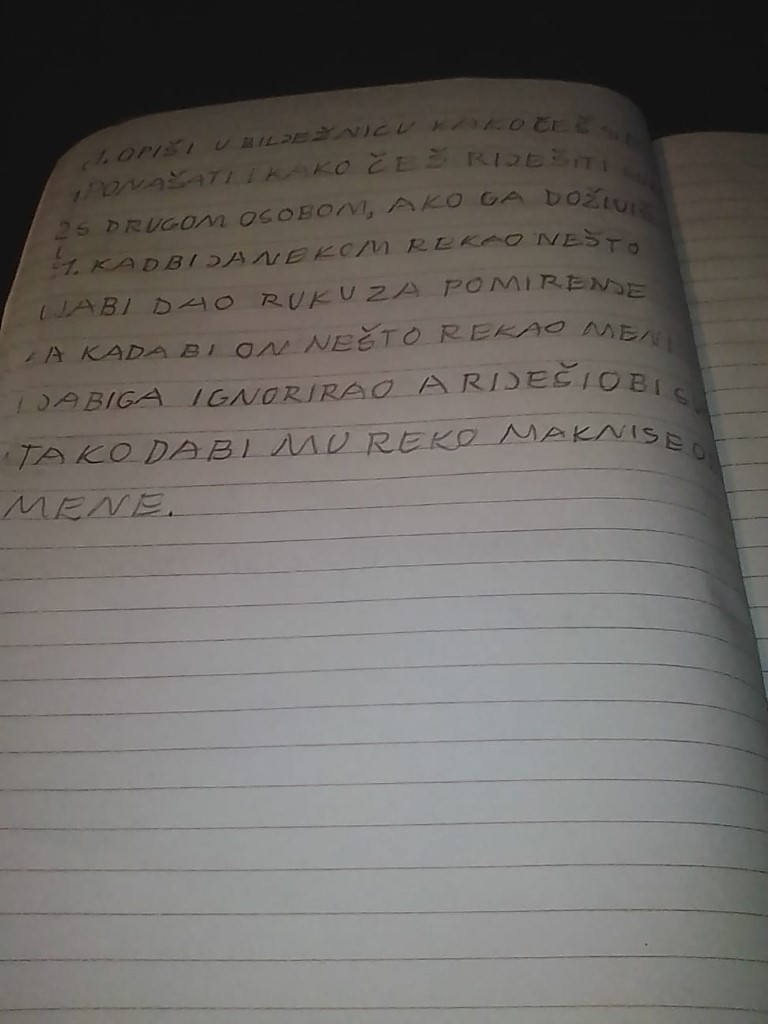 1. OPIŠI U BILJEŽNICU KAKO ČEŠ
PONAŠATI I KAKO ČEŠ RIJEŠITI
S DRUGOM OSOBOM, AKO GA DOŽIVIŠ
1. KADBI JA NEKOM REKAO NEŠTO
JABI DAO RUKU ZA POMIRENJE
A KADA BI ON NEŠTO REKAO MENI
JABIGA IGNORIRAO A RIJEŠIOBI
TAKO DABI MU REKO MAKNISE
MENE.